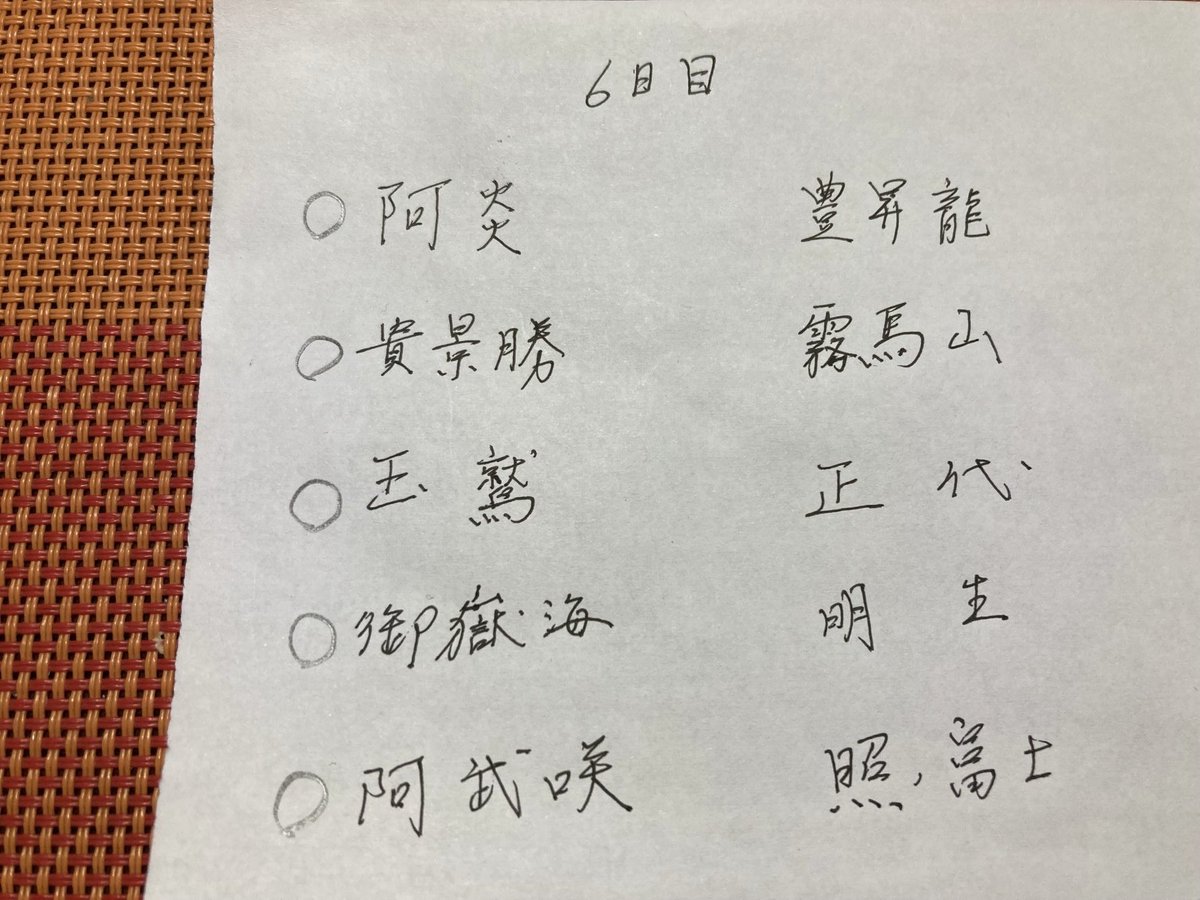 6日目
○ 阿炎 豊昇龍
○ 貴景勝 霧馬山
○ 玉鷲 正代
○ 御嶽海 明生
○ 阿武咲 照ノ富士